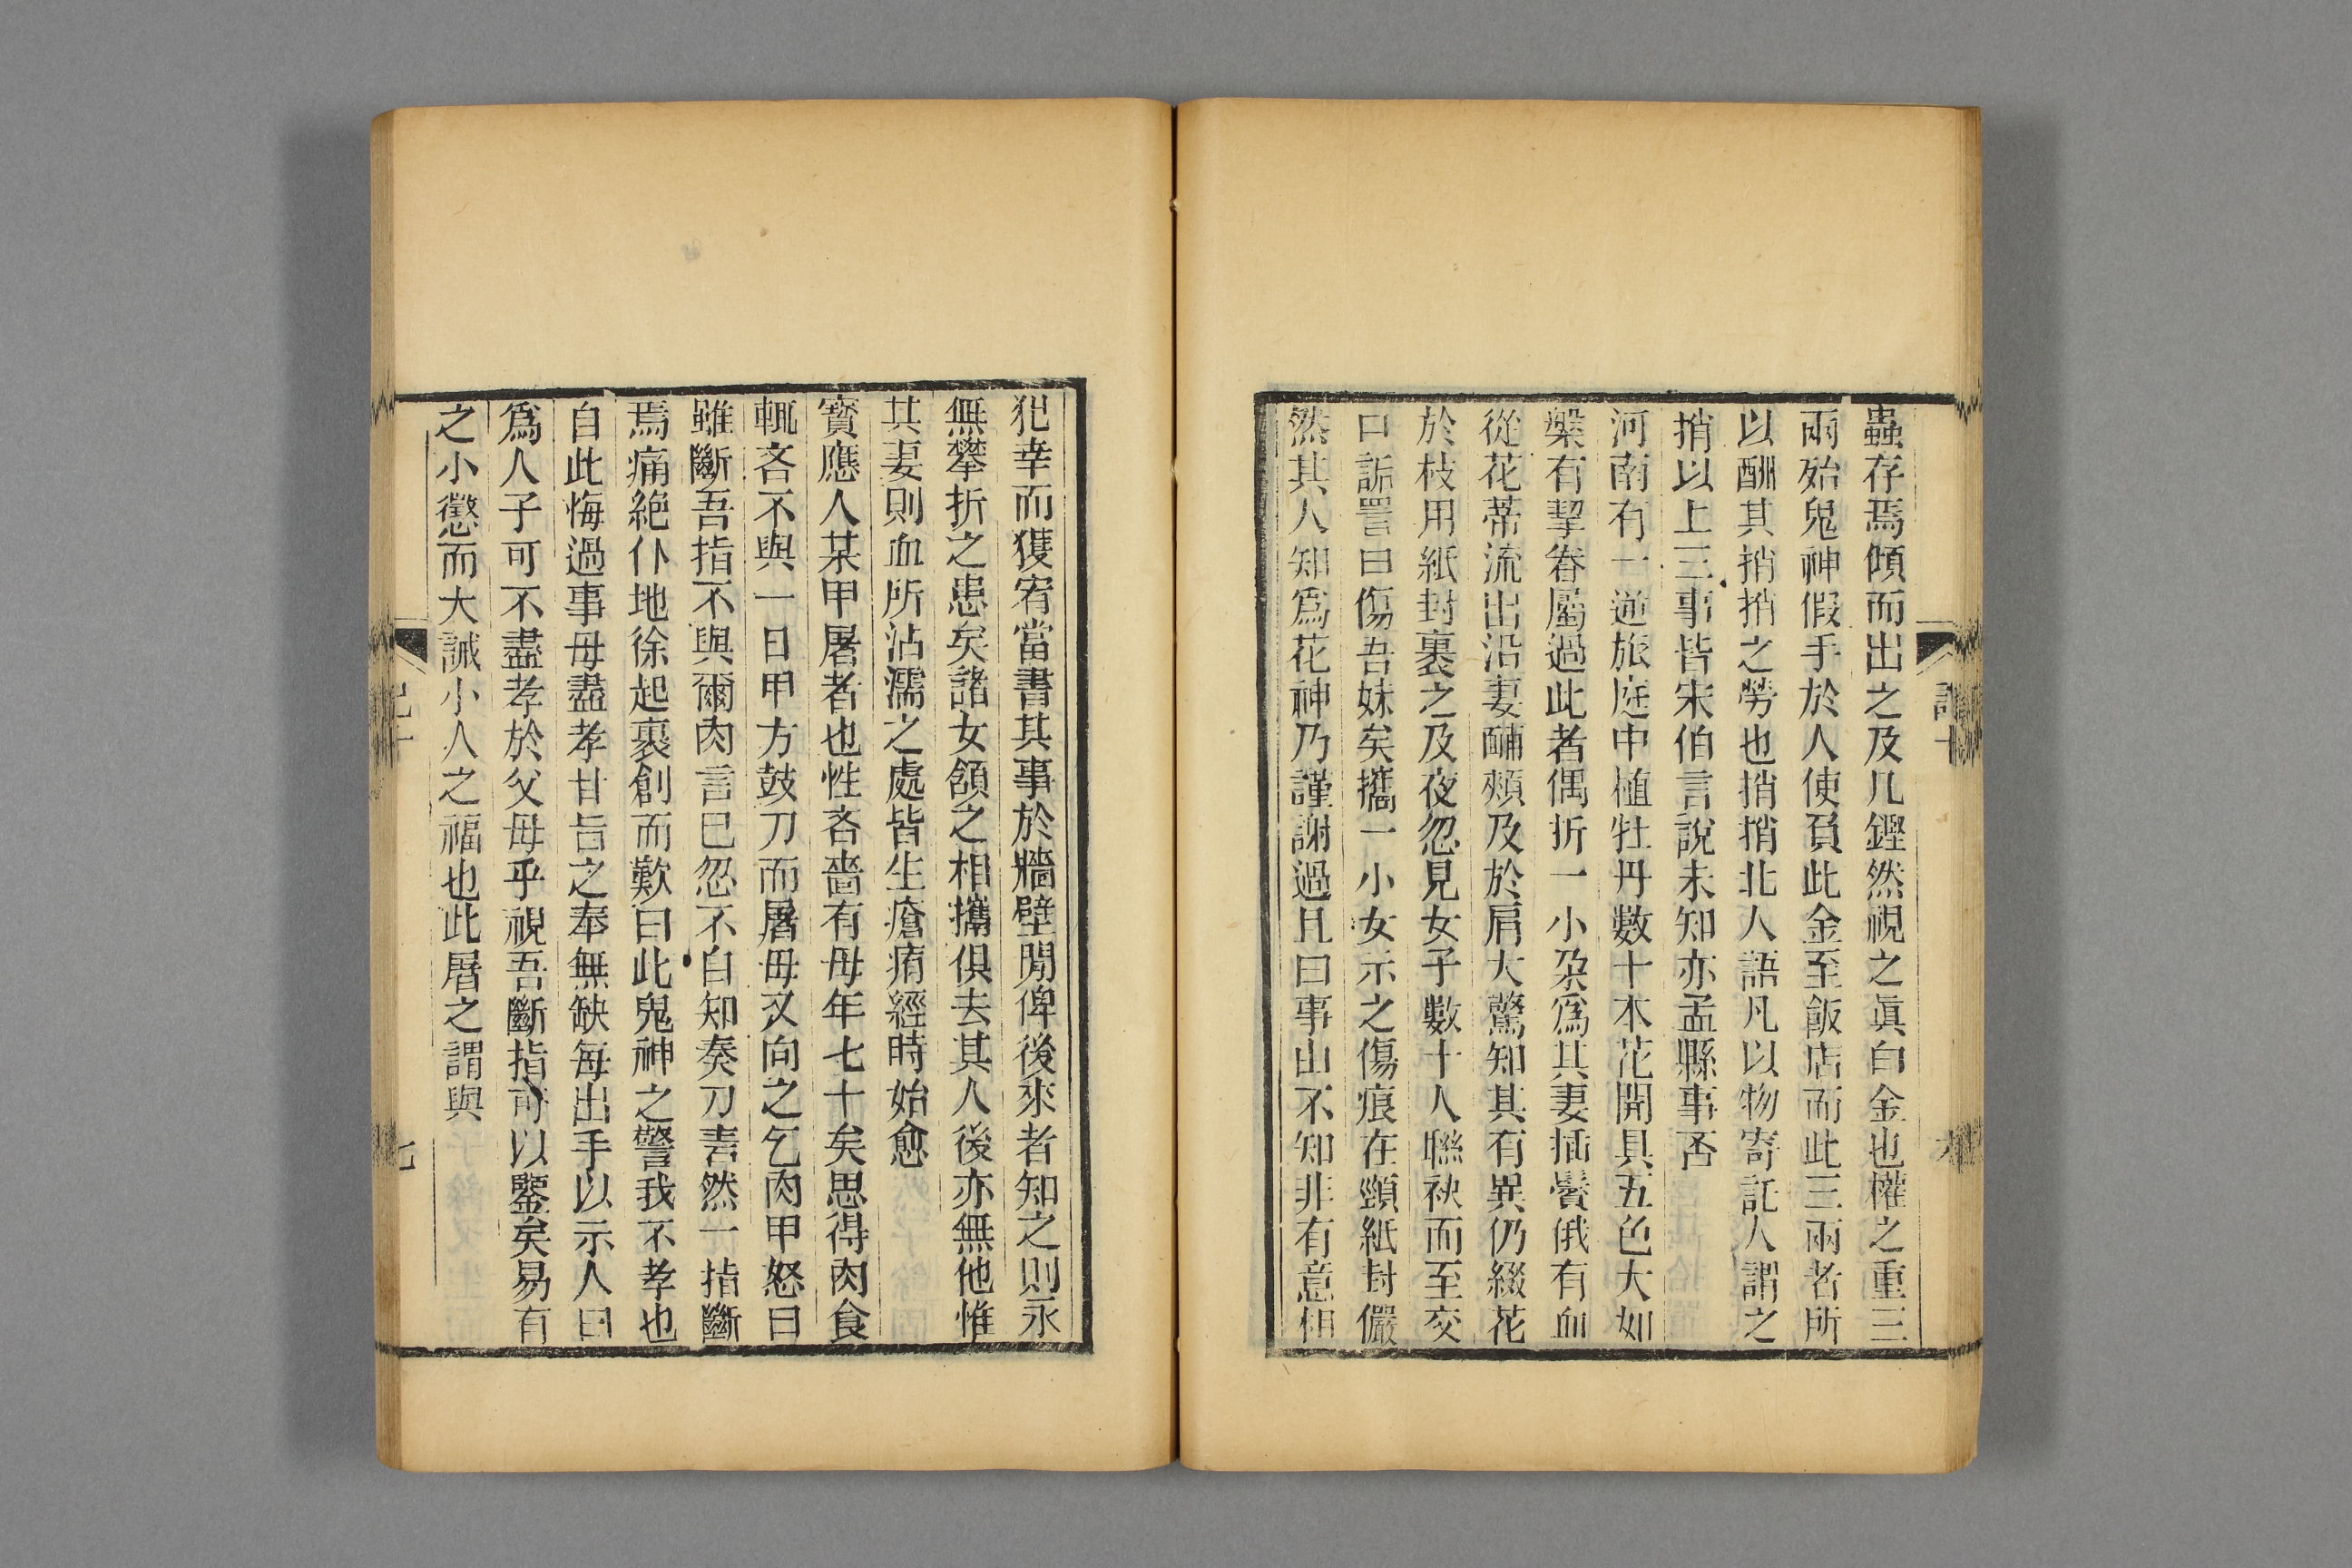 蟲存焉傾而出之及几鏗然視之眞白金也權之重三
兩殆鬼神假手於人使負此金至飯店而此三兩者所
以酬其捎捎之勞也捎捎北人語凡以物寄託人謂之
捎以上三事皆宋伯言說未知亦孟縣事否
河南有一逆旅庭中植牡丹數十本花開具五色大如
槃有挈眷屬過此者偶折一小朶爲其妻插鬢俄有血
從花蒂流出沿妻輔頰及於肩大驚知其有異仍綴花
於枝用紙封裹之及夜忽見女子數十人聯袂而至交
口詬詈曰傷吾妹矣攜一小女示之傷痕在頸紙封儼
然其人知爲花神乃謹謝過且曰事出不知非有意相
犯幸而獲宥當書其事於牆壁閒俾後來者知之則永
無攀折之患矣諸女頷之相攜俱去其人後亦無他惟
其妻則血所沾濡之處皆生瘡痏經時始愈
寳應人某甲屠者也性吝嗇有母年七十矣思得肉食
輒吝不與一日甲方鼓刀而屠母又向之乞肉甲怒曰
雖斷吾指不與爾肉言已忽不自知奏刀砉然一指斷
焉痛絶仆地徐起裹創而歎曰此鬼神之警我不孝也
自此悔過事母盡孝甘旨之奉無缺每出手以示人曰
爲人子可不盡孝於父母乎視吾斷指可以鑒矣易有
之小懲而大誡小人之福也此屠之謂與
七